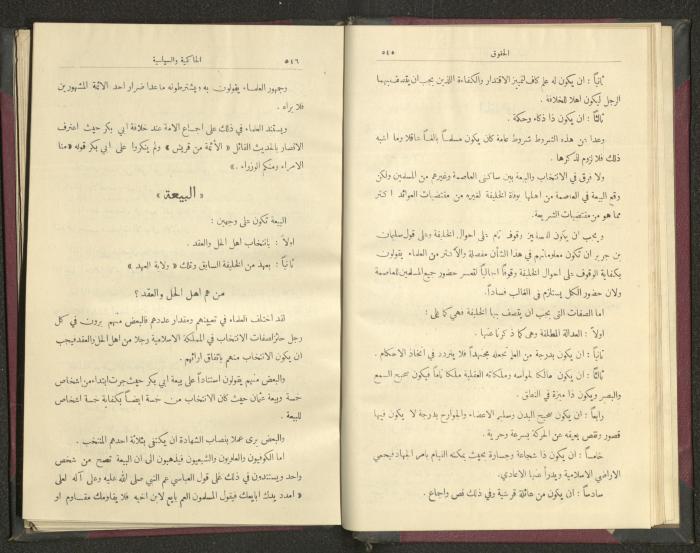 ٥٤٥ الحقوق
ثانياً : ان يكون له علم كاف لتمييز الاقتدار والكفاءة اللذين يجب ان يتصف بهما
الرجل ليكون اهلا للخلافة .
ثالثاً : ان يكون ذا ذكاء وحكمة .
وعدا عن هذه الشروط شروط عامة كان يكون مسلماً بالغاً عاقلا وما اشبه
ذلك فلا لزوم لذكرها .
ولا فرق في الانتخاب والبيعة بين ساكني العاصمة وغيرهم من المسلمين ولكن
وقع البيعة في العاصمة من اهلها بوفاة الخليفة لغيره من مقتضيات العوائد اكثر
مما هو من مقتضيات الشريعة .
ويجب ان يكون للمسلمين وقوف تام على احوال الخليفة وعلى قول سليمان
بن جرير ان تكون معلوماتهم في هذا الشأن مفصلة والاكثر من العلماء يقولون
بكفاية الوقوف على احوال الخليفة وقوفاً اجمالياً لتعسر حضور جميع المسلمين للعاصمة
ولان حضور الكل يستلزم في الغالب فساداً .
اما الصفات التي يجب ان يتصف بها الخليفة فهي كما يلي :
اولاً : العدالة المطلقة وهي كما ذكرنا عنها .
ثانياً : ان يكون بدرجة من العلم تجعله مجتهداً فلا يتردد في اتخاذ الاحكام .
ثالثاً : ان يكون مالكا لحواسه وملكاته العقلية ملكا تاماً فيكون صحيح السمع
والبصر ويكون ذا ميزة في النطق .
رابعاً : ان يكون صحيح البدن وسليم الاعضاء والجوارح بدرجة لا يكون فيها
قصور ونقص يعيقه عن الحركة بسرعة وحرية .
خامساً : ان يكون ذا شجاعة وجسارة بحيث يمكنه القيام بامر الجهاد فيحمي
الاراضي الاسلامية ويدرأ عنها الاعادي .
سادساً : ان يكون من عائلة قرشية وفي ذلك نص واجماع .
٥٤٦ الملكية والسياسية
وجمهور العلماء يقولون به ويشترطونه ماعدا ضرار احد الائمة المشهورين
فلا يراه .
ويستند العلماء في ذلك على اجماع الامة عند خلافة ابي بكر حيث اعترف
الانصار بالحديث القائل « الأئمة من قريش » ولم ينكروا على ابي بكر قوله «منا
الامراء ومنكم الوزراء .»
« البيعة »
البيعة تكون على وجهين :
اولاً : بانتخاب اهل الحل والعقد .
ثانياً : بعهد من الخليفة السابق وتلك « ولاية العهد »
من هم اهل الحل والعقد ؟
لقد اختلف العلماء في تعيينهم ومقدار عددهم فالبعض منهم يرون في كل
رجل حائز لصفات الانتخاب في المملكة الاسلامية رجلا من اهل الحل والعقد فيجب
ان يكون الانتخاب منهم باتفاق ارائهم .
والبعض منهم يقولون استناداً على بيعة ابي بكر حيث جرت ابتدا من اشخاص
خمسة وبيعة عثمان حيث كان الانتخاب من خمسة ايضاً بكفاية خمسة اشخاص
للبيعة .
والبعض يرى عملا بنصاب الشهادة ان يكتفى بثلاثة احدهم المنتخب .
اما الكوفيون والعلويون والشيعيون فيذهبون الى ان البيعة تصح من شخص
واحد ويستندون في ذلك على قول العباسي عم النبي صلى الله عليه وعلى آله لعلي
« امدد يدك ابايعك فيقول المسلمون العم بايع لابن اخيه فلا يقاومك مقاوم او